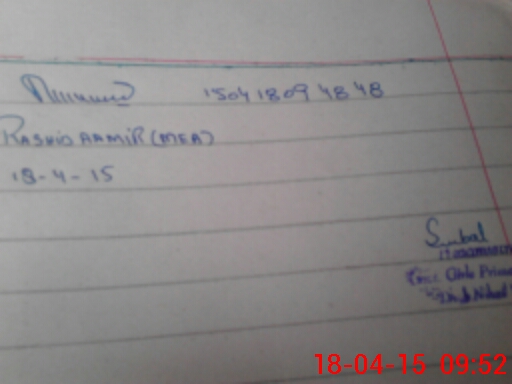 15041809 4848
RASHID AAMIR (MEA)
18-4-15
Sumbal
Govt. Girls
18-04-15 09:52